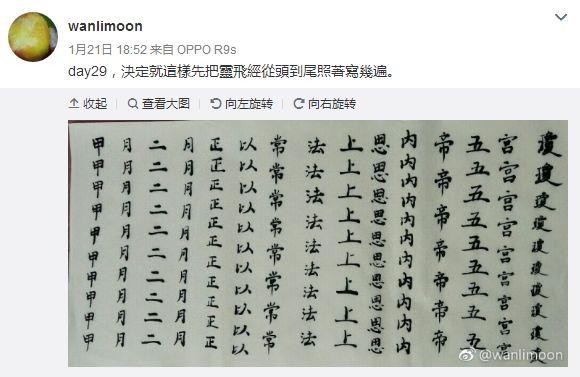 wanlimoon
1月21日 18:52 来自 OPPO R9s
day29，決定就這樣先把靈飛經從頭到尾照著寫幾遍。
收起 查看大图 向左旋转 向右旋转
瓊瓊瓊瓊瓊瓊瓊瓊瓊瓊瓊
宮宮宮宮宮宮宮宮宮宮宮
五五五五五五五五五
帝帝帝帝帝帝帝帝帝
內內內內內內內內內內內
思思思思思思思思思思思思
上上上上上上上上上
法法法法法法法法法法
常常常常常常常常常
以以以以以以以以以以以
正正正正正正正正正正正
月月月月月月月月月月
二二二二二二二二二
月月月月月月月月月月
甲甲甲甲甲甲甲甲甲甲
@wanlimoon